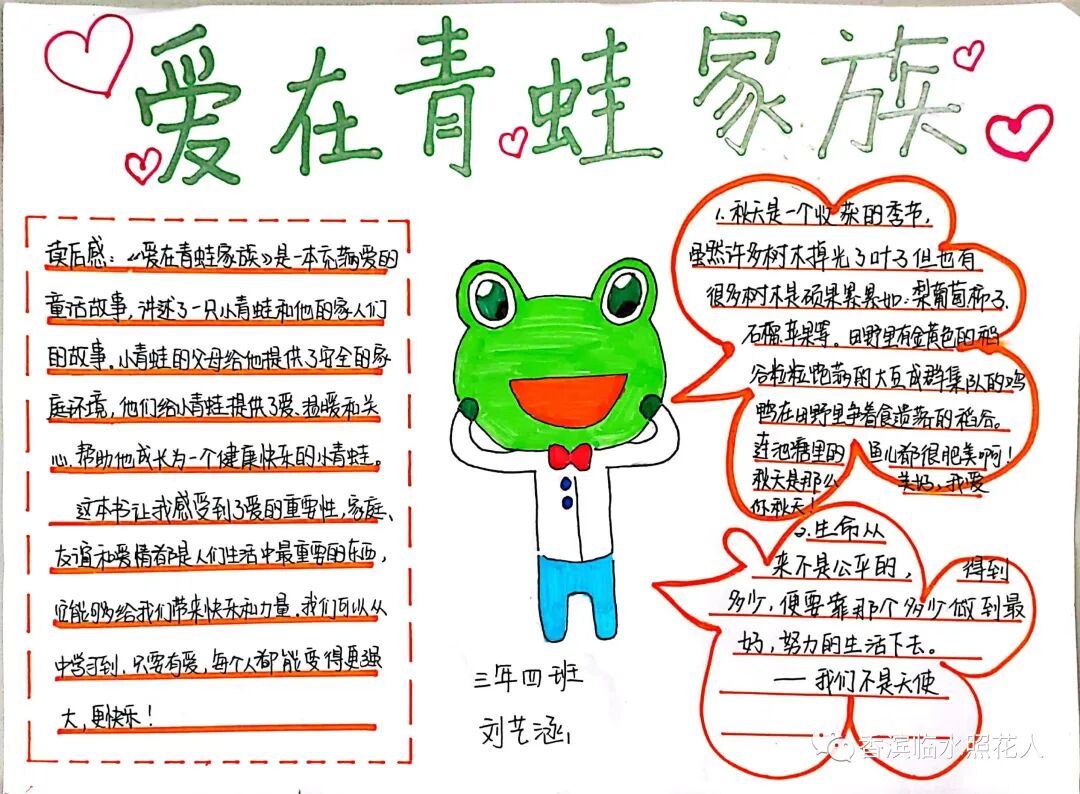 爱在青蛙家族
读后感:《爱在青蛙家族》是一本充满爱的
童话故事,讲述了一只小青蛙和他的家人们
的故事。小青蛙的父母给他提供了安全的家
庭环境,他们给小青蛙提供了爱、温暖和关
心、帮助他成长为一个健康快乐的小青蛙。
这本书让我感受到了爱的重要性,家庭、
友谊和爱情都是人们生活中最重要的东西,
它能够给我们带来快乐和力量。我们可以从
中学习到、只要有爱,每个人都能变得更强
大,更快乐!
三年四班
刘艺涵
1.秋天是一个收获的季节,
虽然许多树木掉光了叶子但也有
很多树木是硕果累累如:梨葡萄柿子、
石榴、苹果等。田野里有金黄色的稻
谷粒粒饱满的大豆成群集队的鸡
鸭在田野里争着食遗落的稻谷。
连池塘里的鱼儿都很肥美啊!
秋天是那么美好,我爱
你秋天!
2.生命从
来不是公平的,得到
多少,便要靠那个多少做到最
好,努力的生活下去。
——我们不是天使
香滨临水照花人